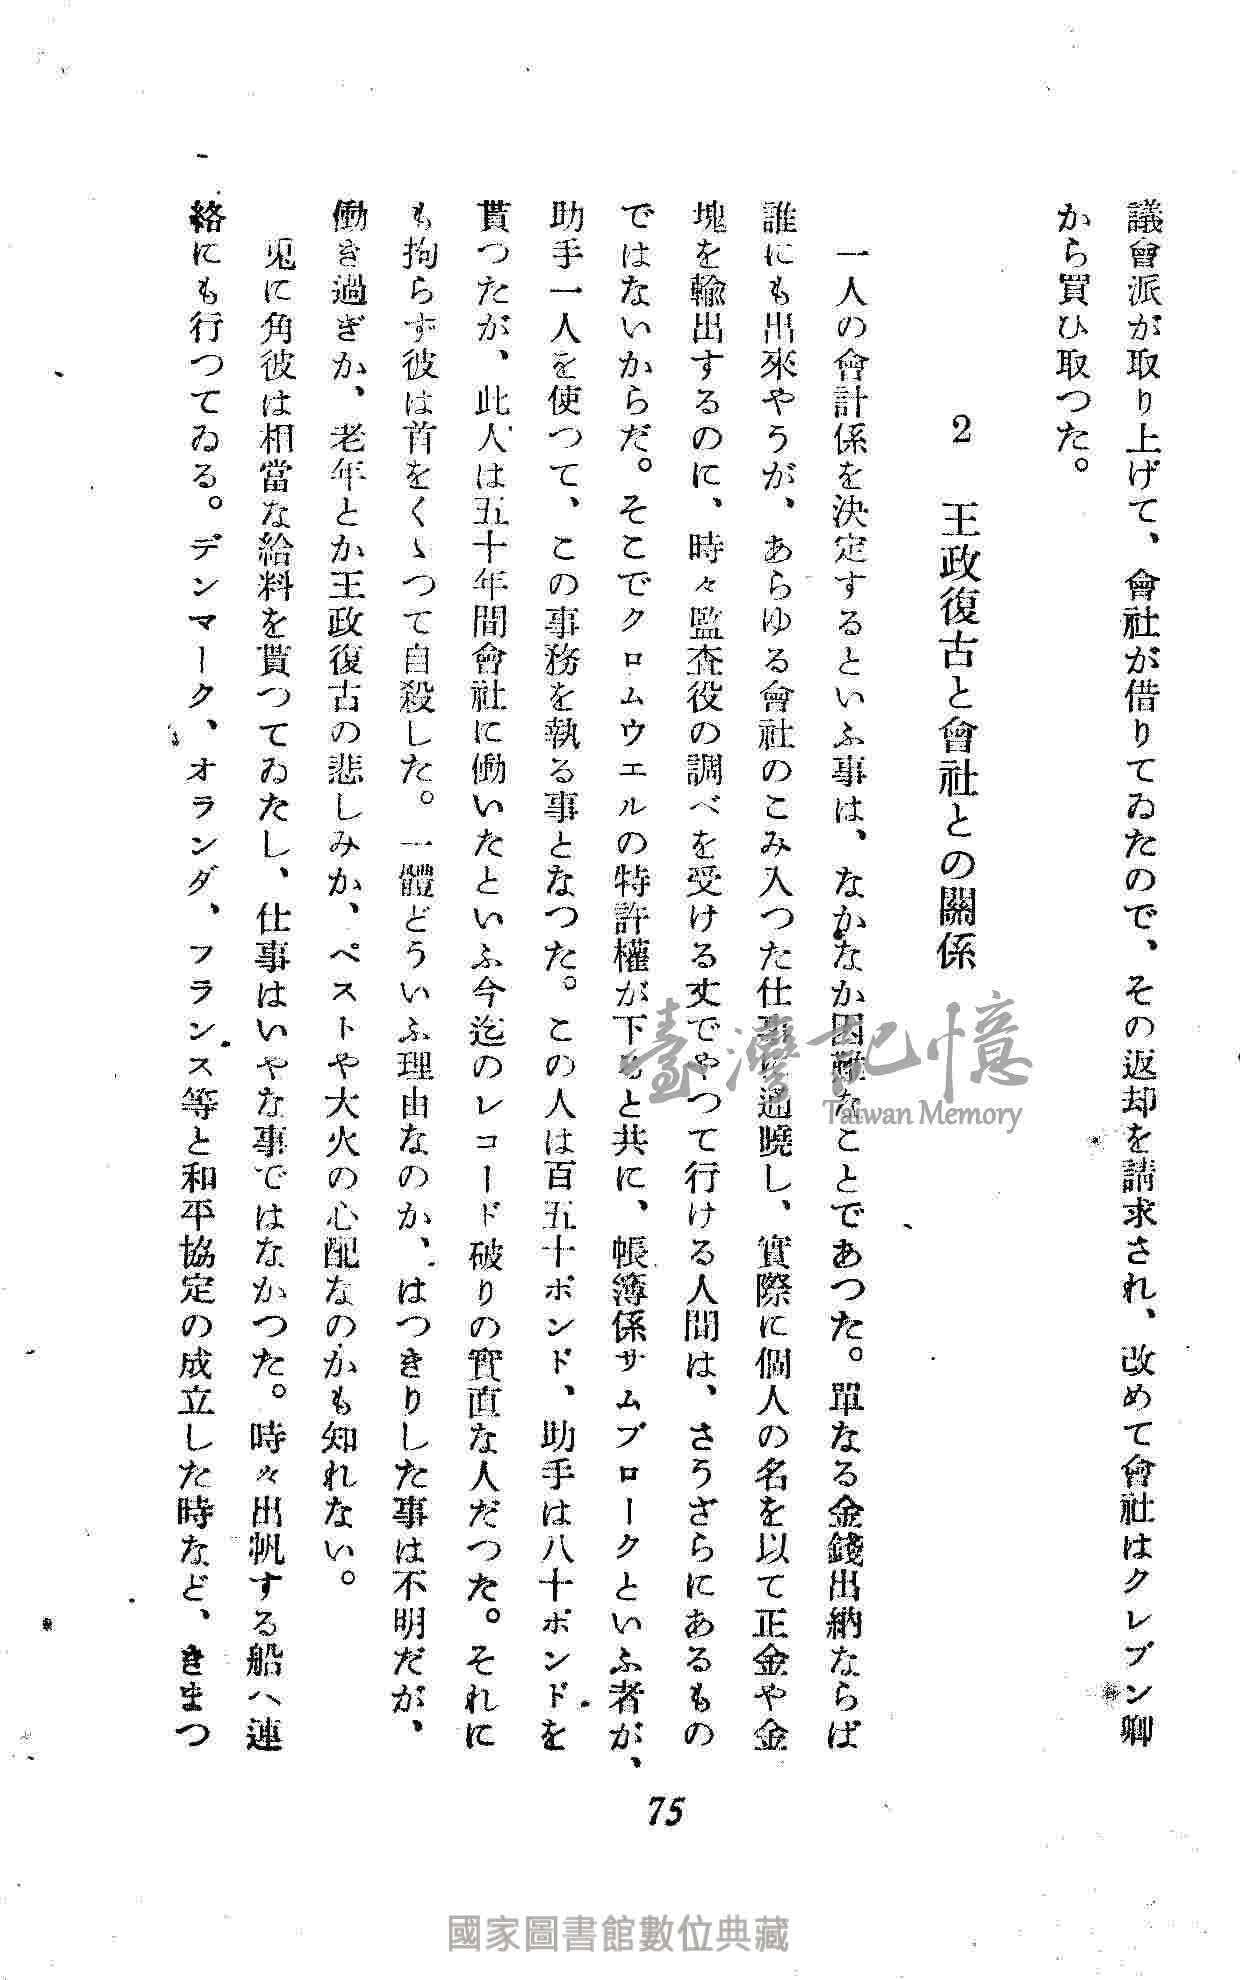 議會派が取り上げて、會社が借りてゐたので、その返却を請求され、改めて會社はクレブン卿
から買ひ取つた。
2 王政復古と會社との關係
一人の會計係を決定するといふ事は、なかなか困難なことであつた。單なる金錢出納ならば
誰にも出來やうが、あらゆる會社のこみ入つた仕事に通曉し、實際に個人の名を以て正金や金
塊を輸出するのに、時々監査役の調べを受ける丈でやつて行ける人間は、さうざらにあるもの
ではないからだ。そこでクロムウエルの特許權が下ると共に、帳簿係サムブロークといふ者が、
助手一人を使つて、この事務を執る事となつた。この人は百五十ポンド、助手は八十ポンドを
貰つたが、此人は五十年間會社に働いたといふ今迄のレコード破りの實直な人だつた。それに
も拘らず彼は首をくゝつて自殺した。一體どういふ理由なのか、はつきりした事は不明だが、
働き過ぎか、老年とか王政復古の悲しみか、ペストや大火の心配なのかも知れない。
兎に角彼は相當な給料を貰つてゐたし、仕事はいやな事ではなかつた。時々出帆する船へ連
絡にも行つてゐる。デンマーク、オランダ、フランス等と和平協定の成立した時など、きまつ
75
臺灣記憶
Taiwan Memory
國家圖書館數位典藏